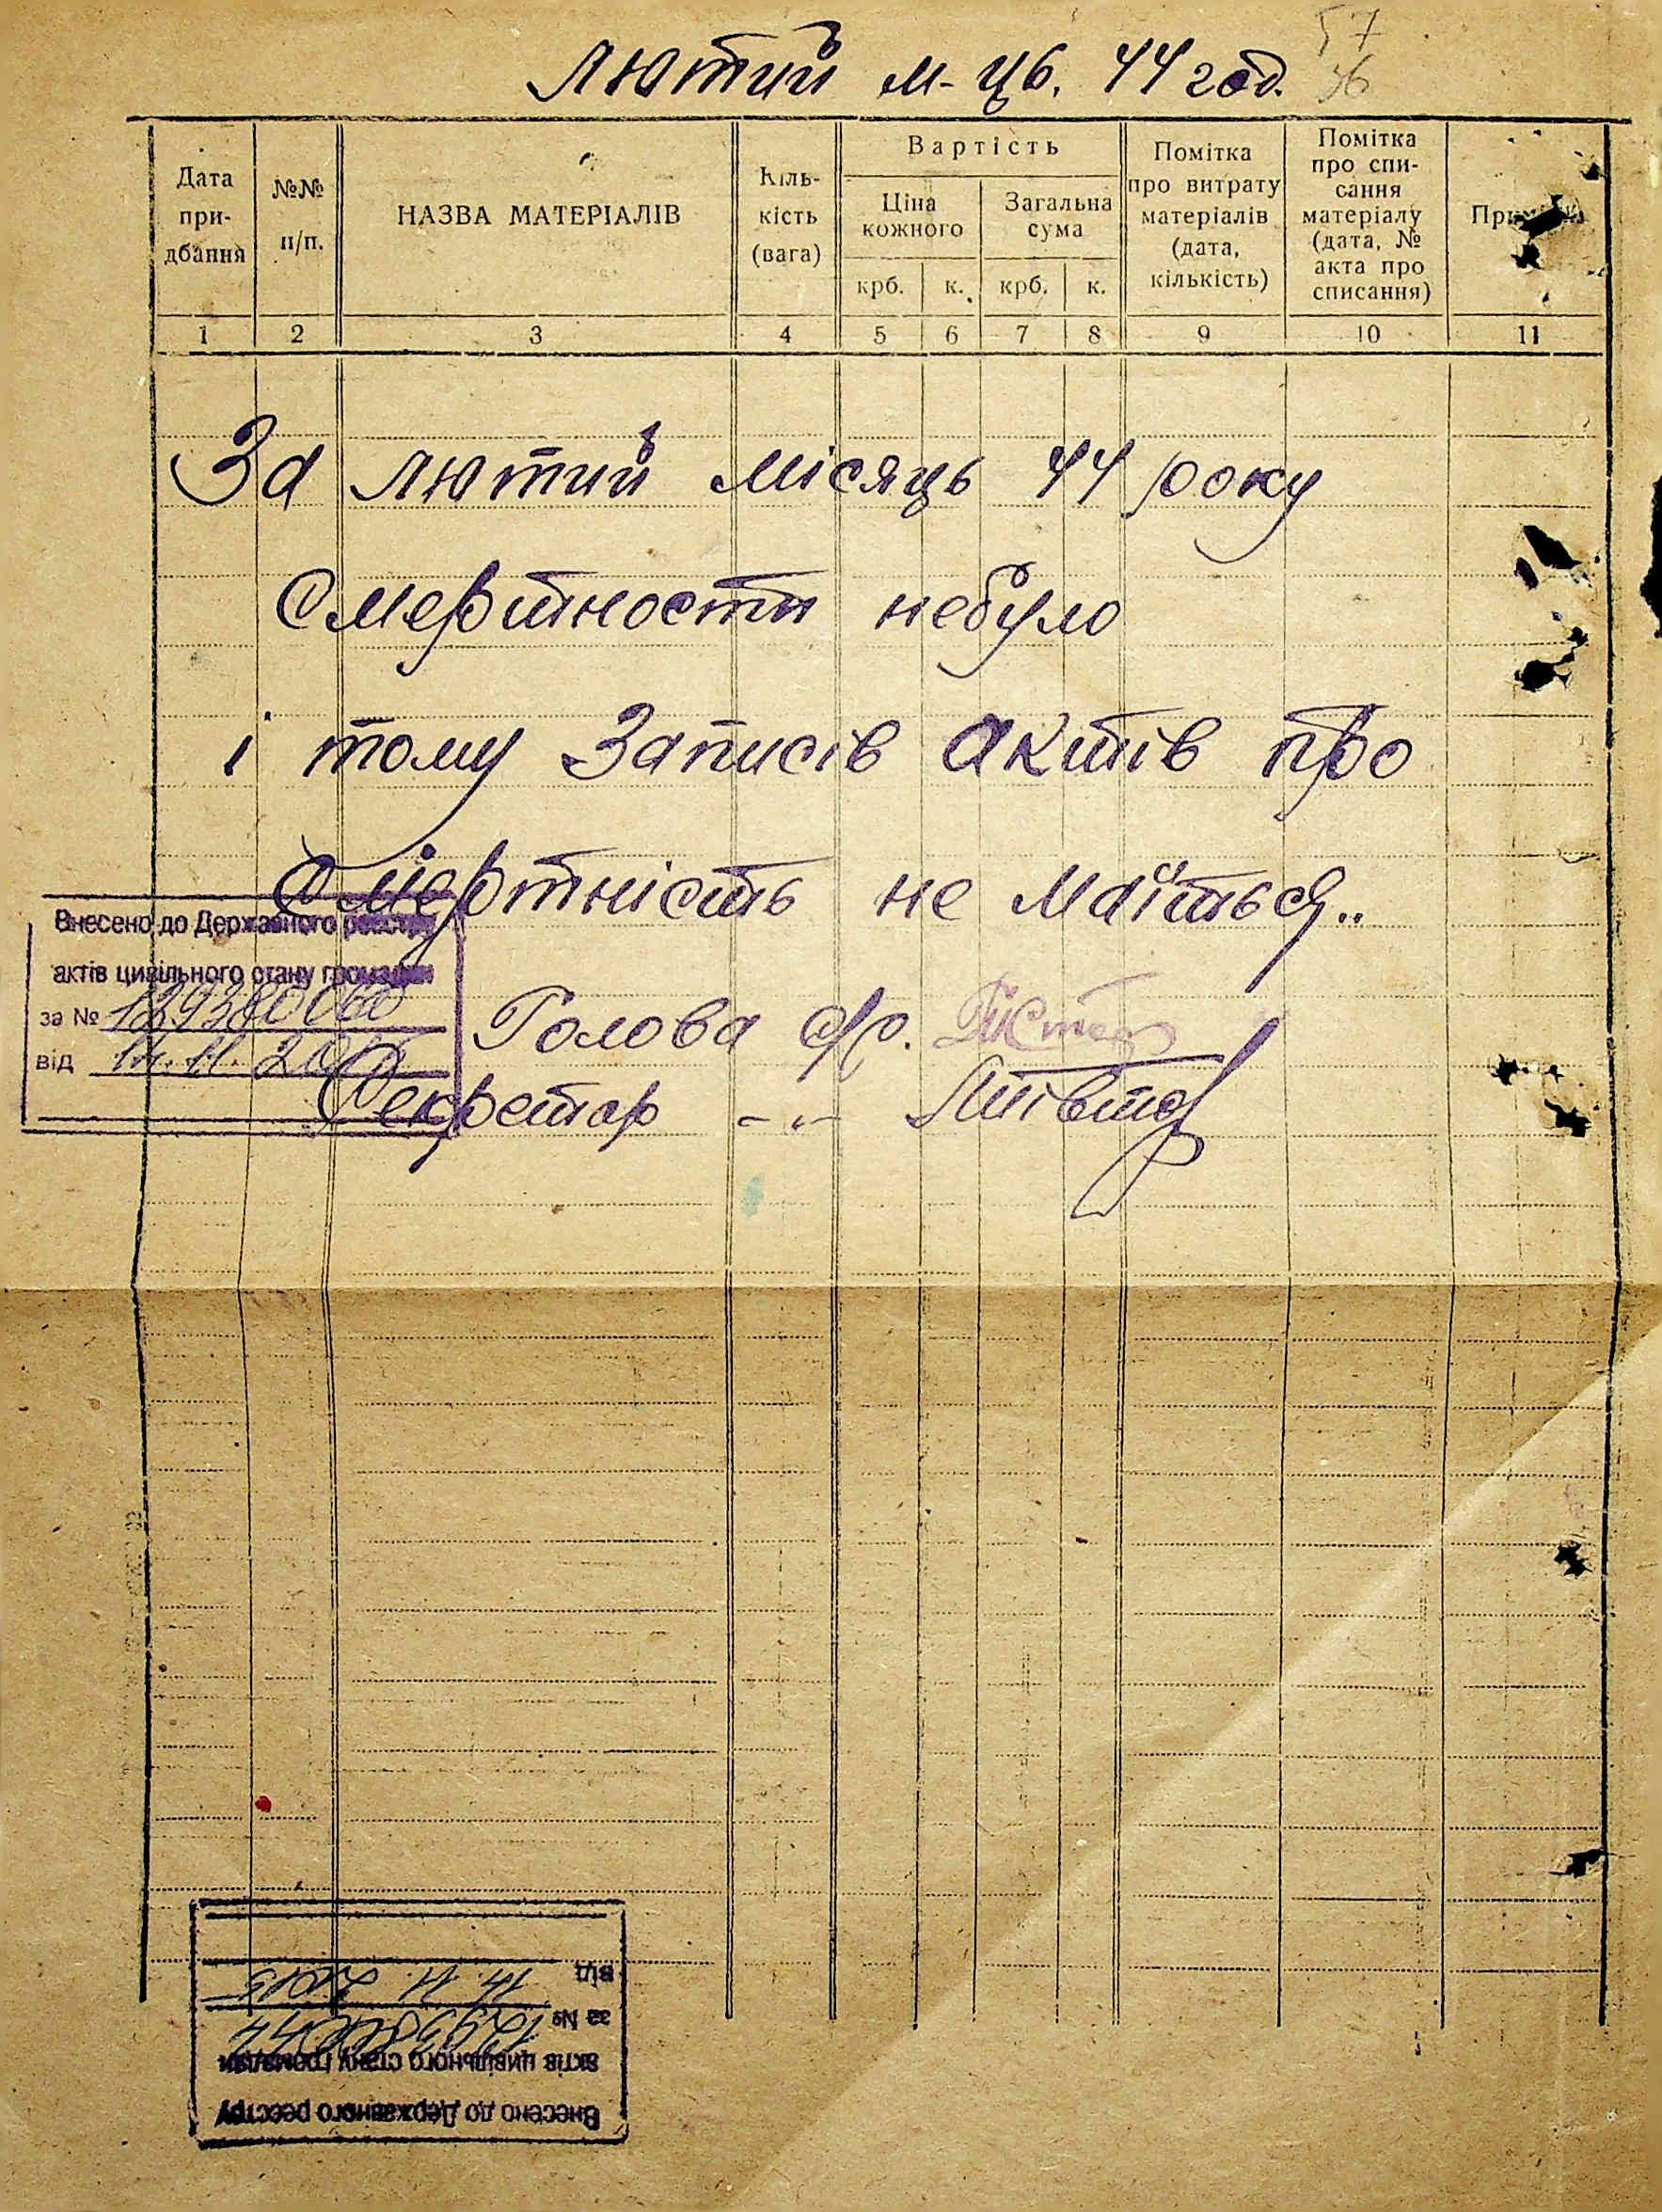 57
46
Лютий м-ць. 44 год.
Дата при-дбання
№№ п/п.
НАЗВА МАТЕРІАЛІВ
Кіль-кість (вага)
Вартість
Ціна кожного
Загальна сума
крб. к. крб. к.
Помітка про витрату матеріалів (дата, кількість)
Помітка про спи-сання матеріалу (дата, № акта про списання)
1 2 3 4 5 6 7 8 9 10 11
За лютий місяць 44 року
Смертности небуло
і тому Записів актів про
Смертність не маїться..
Внесено до Державного реєстру
актів цивільного стану громадян
за №
від
Голова с/р.
Секретар -"-
Внесено до Державного реєстру
актів цивільного стану громадян
за №
від 14.11.2013